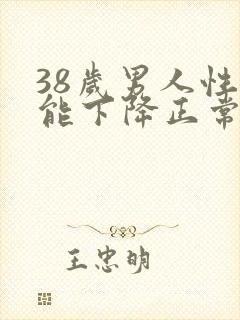 38歲男人性
能下降正常
王忠明